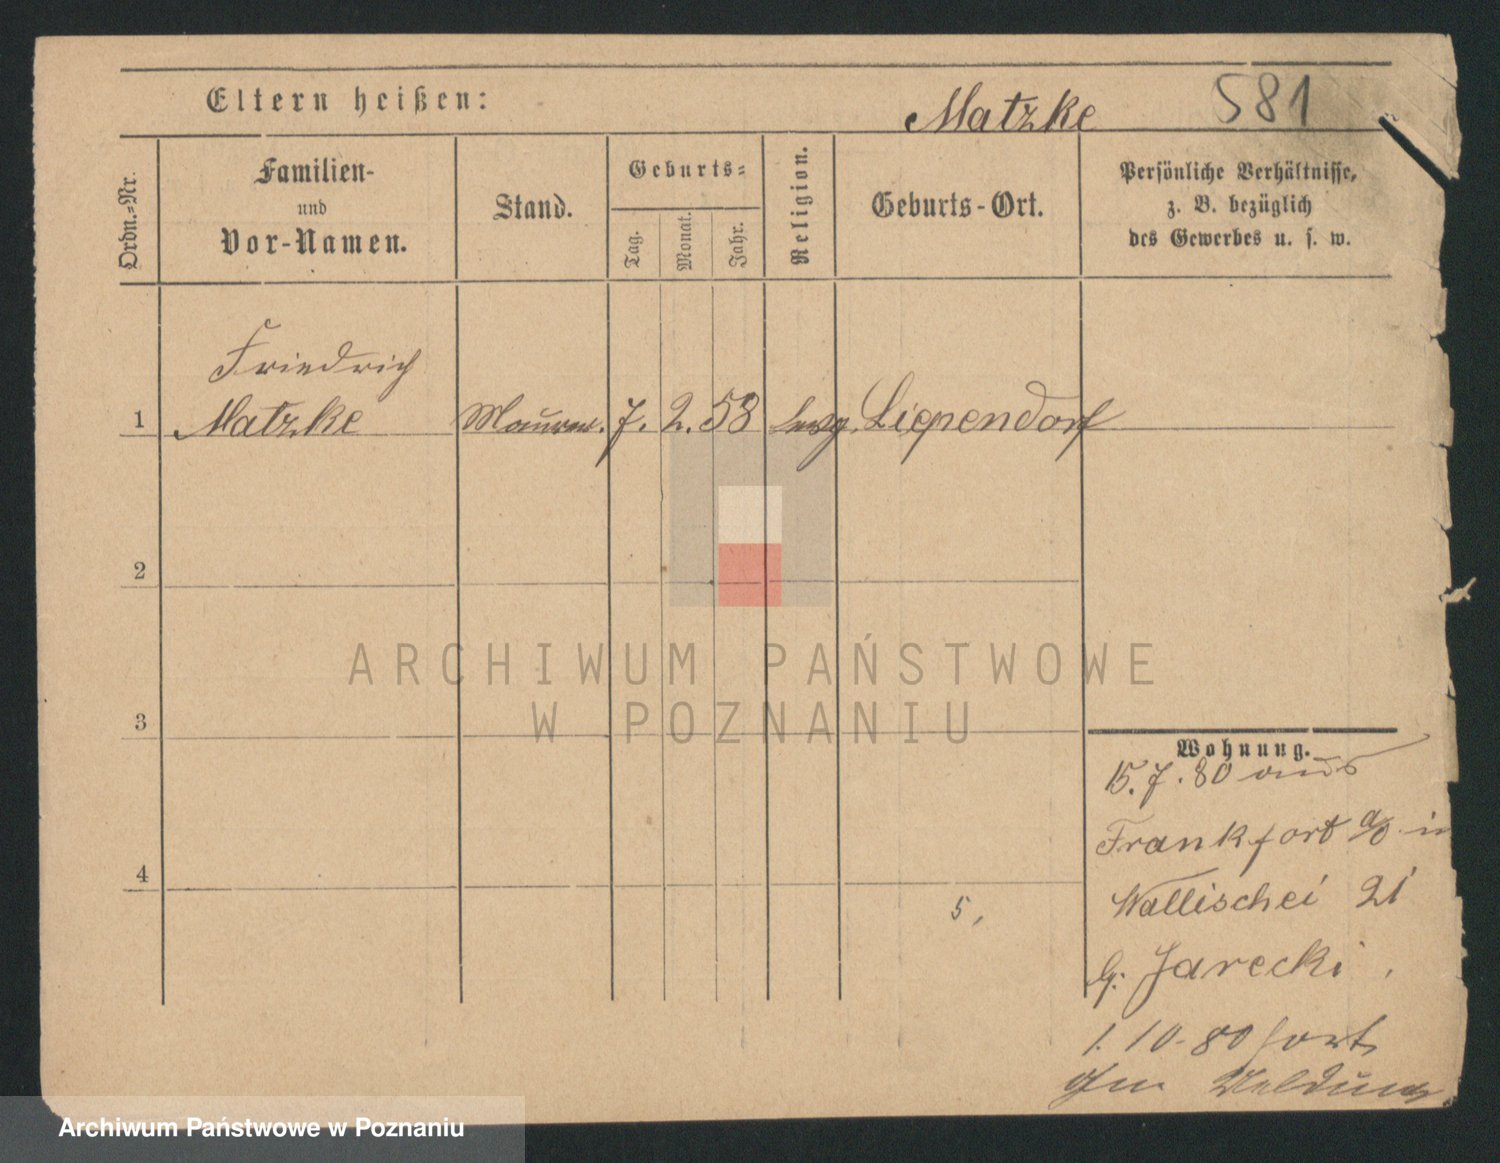 Eltern heißen:
Matzke
581
Ordn.-Nr.
Familien-
und
Vor-Namen.
Stand.
Geburts-
Tag.
Monat.
Jahr.
Religion.
Geburts-Ort.
Persönliche Verhältnisse,
z. B. bezüglich
des Gewerbes u. s. w.
Friedrich
1 Matzke Maurer. 7. 2. 58 evg. Liependorf
2
3
4
5,
Wohnung.
15.7.80 aus
Frankfort a/O in
Wallischei 21
b. Jarecki.
1.10.80 fort
ohne Meldung
ARCHIWUM PAŃSTWOWE
W POZNANIU
Archiwum Państwowe w Poznaniu